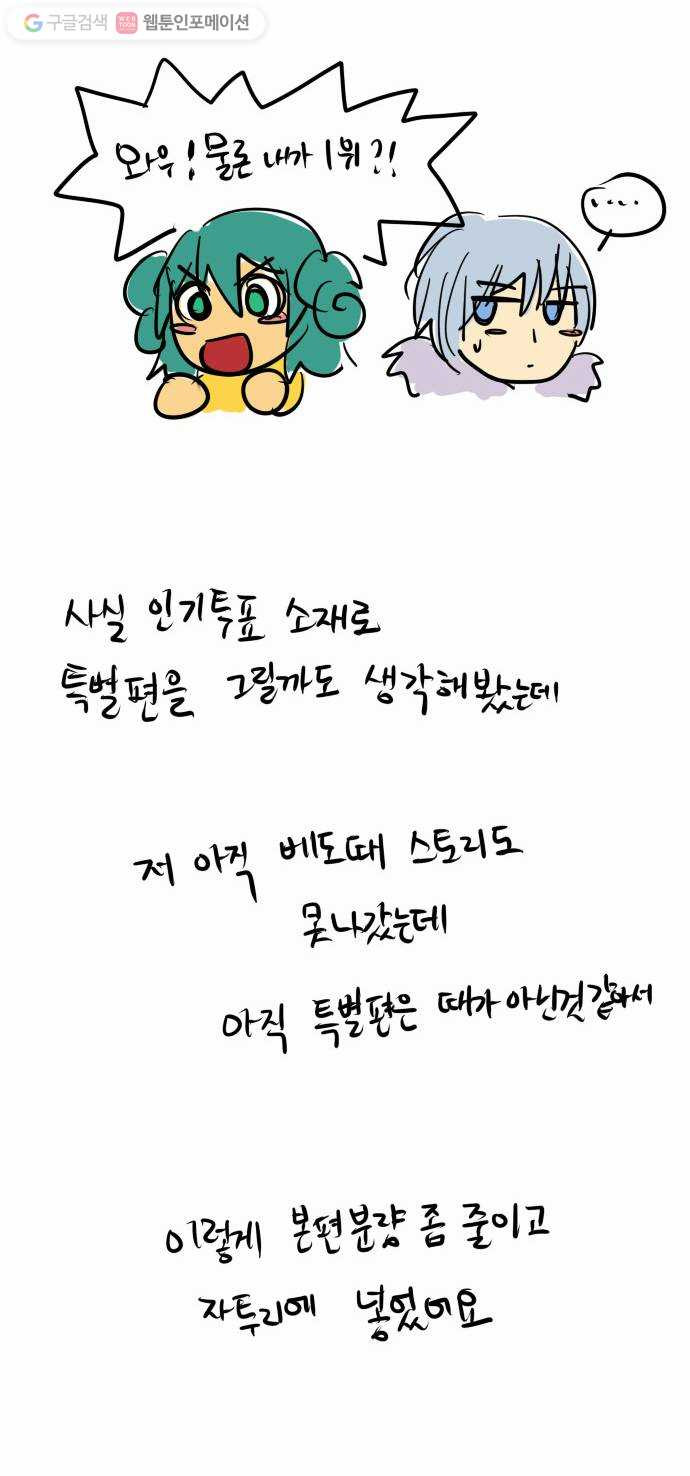 구글검색 WEB TOON 웹툰인포메이션
와우! 물론 내가 1위?!
.....
사실 인기투표 소재로
특별편을 그릴까도 생각해봤는데
저 아직 베도때 스토리도
못나갔는데
아직 특별편은 때가 아닌것 같아서
이렇게 본편분량 좀 줄이고
자투리에 넣었어요